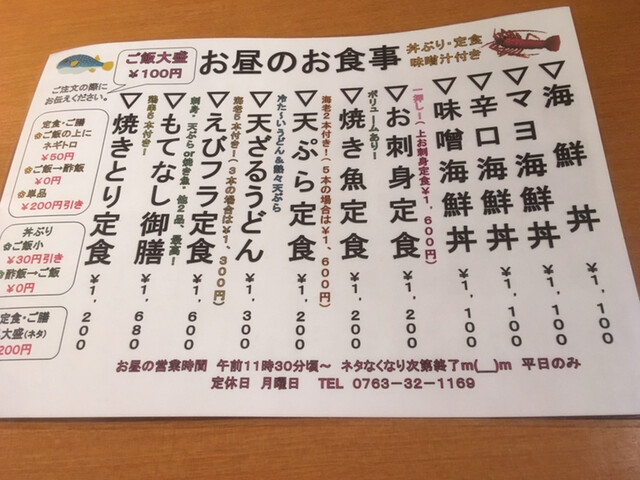 お昼のお食事
丼ぶり・定食
味噌汁付き
ご飯大盛
￥100円
ご注文の際に
お伝えください。
▽海鮮丼 ￥1,100
▽マヨ海鮮丼 ￥1,100
▽辛口海鮮丼 ￥1,100
▽味噌海鮮丼 ￥1,100
一押し!(上お刺身定食￥1,600円)
▽お刺身定食 ￥1,200
ボリュームあり!
▽焼き魚定食 ￥1,200
海老2本付き!(5本の場合は￥1,600円)
▽天ぷら定食 ￥1,200
冷た～いうどん&熱々天ぷら
▽天ざるうどん ￥1,300
海老5本付き!(3本の場合は￥1,300円)
▽えびフライ定食 ￥1,600
刺身・天ぷらor焼き魚・他2品、最高!
▽もてなし御膳 ￥1,680
5本付き!
▽焼きとり定食 ￥1,200
定食・ご膳
ご飯の上に
ネギトロ
￥50円
ご飯→酢飯
￥0円
単品
￥200円引き
丼ぶり
ご飯小
￥30円引き
酢飯→ご飯
￥0円
定食・ご膳
大盛(ネタ)
200円
お昼の営業時間 午前11時30分頃～ ネタなくなり次第終了m(__)m 平日のみ
定休日 月曜日 TEL 0763-32-1169